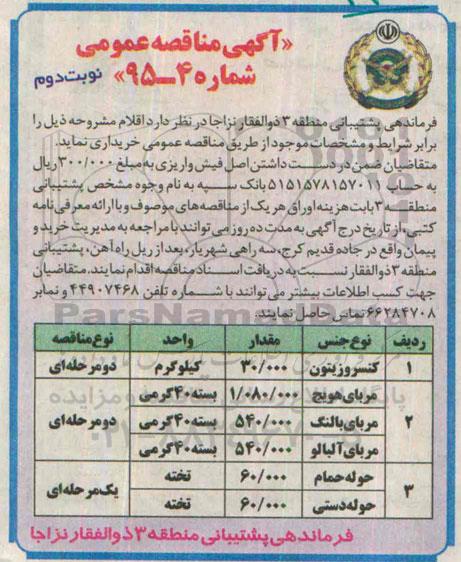 «آگهی مناقصه عمومی
شماره ۴ــ۹۵» نوبت دوم
فرماندهی پشتیبانی منطقه ۳ ذوالفقار نزاجا در نظر دارد اقلام مشروحه ذیل را
برابر شرایط و مشخصات موجود از طریق مناقصه عمومی خریداری نماید.
متقاضیان ضمن در دست داشتن اصل فیش واریزی به مبلغ ۳۰۰/۰۰۰ ریال
به حساب ۵۱۵۱۵۷۸۱۵۷۰۱۱ بانک سپه به نام وجوه مشخص پشتیبانی
منطقه ۳ بابت هزینه اوراق هر یک از مناقصه‌های موصوف و با ارائه معرفی‌نامه
کتبی، از تاریخ درج آگهی به مدت ده روز می‌توانند با مراجعه به مدیریت خرید و
پیمان واقع در جاده قدیم کرج، سه راهی شهریار، بعد از ریل راه آهن، پشتیبانی
منطقه ۳ ذوالفقار نسبت به دریافت اسناد مناقصه اقدام نمایند. متقاضیان
جهت کسب اطلاعات بیشتر می توانند با شماره تلفن ۴۴۹۰۷۴۶۸ و نمابر
۶۶۲۸۴۷۰۸ تماس حاصل نمایند.
ردیف نوع جنس مقدار واحد نوع مناقصه
۱ کنسرو زیتون ۳۰/۰۰۰ کیلوگرم دو مرحله‌ای
مربای هویج ۱/۰۸۰/۰۰۰ بسته ۴۰ گرمی
۲ مربای بالنگ ۵۴۰/۰۰۰ بسته ۴۰ گرمی دو مرحله‌ای
مربای آلبالو ۵۴۰/۰۰۰ بسته ۴۰ گرمی
۳ حوله حمام ۶۰/۰۰۰ تخته یک مرحله‌ای
حوله دستی ۶۰/۰۰۰ تخته
فرماندهی پشتیبانی منطقه ۳ ذوالفقار نزاجا